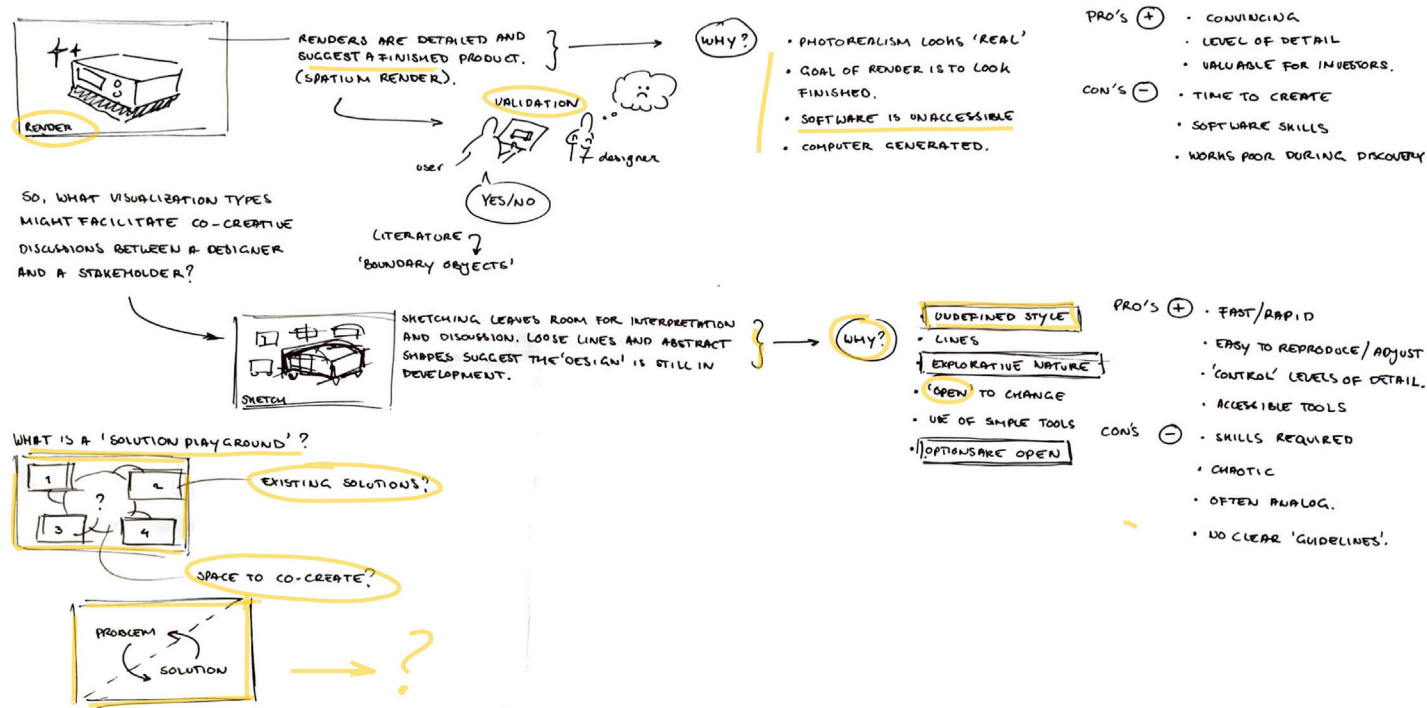 RENDER
RENDERS ARE DETAILED AND
SUGGEST A FINISHED PRODUCT.
(SPATIUM RENDER).
VALIDATION
user
designer
YES/NO
LITERATURE
'BOUNDARY OBJECTS'
WHY?
• PHOTOREALISM LOOKS 'REAL'
• GOAL OF RENDER IS TO LOOK
FINISHED.
• SOFTWARE IS UNACCESSIBLE
• COMPUTER GENERATED.
PRO'S +
• CONVINCING
• LEVEL OF DETAIL
• VALUABLE FOR INVESTORS.
CON'S -
• TIME TO CREATE
• SOFTWARE SKILLS
• WORKS POOR DURING DISCOVERY
SO, WHAT VISUALIZATION TYPES
MIGHT FACILITATE CO-CREATIVE
DISCUSSIONS BETWEEN A DESIGNER
AND A STAKEHOLDER?
SKETCH
SKETCHING LEAVES ROOM FOR INTERPRETATION
AND DISCUSSION. LOOSE LINES AND ABSTRACT
SHAPES SUGGEST THE 'DESIGN' IS STILL IN
DEVELOPMENT.
WHY?
• UNDEFINED STYLE
• LINES
• EXPLORATIVE NATURE
• 'OPEN' TO CHANGE
• USE OF SIMPLE TOOLS
• OPTIONS ARE OPEN
PRO'S +
• FAST/RAPID
• EASY TO REPRODUCE/ADJUST
• 'CONTROL' LEVELS OF DETAIL.
• ACCESSIBLE TOOLS
CON'S -
• SKILLS REQUIRED
• CHAOTIC
• OFTEN ANALOG.
• NO CLEAR 'GUIDELINES'.
WHAT IS A 'SOLUTION PLAYGROUND'?
1
2
?
3
4
EXISTING SOLUTIONS?
SPACE TO CO-CREATE?
PROBLEM
SOLUTION
?